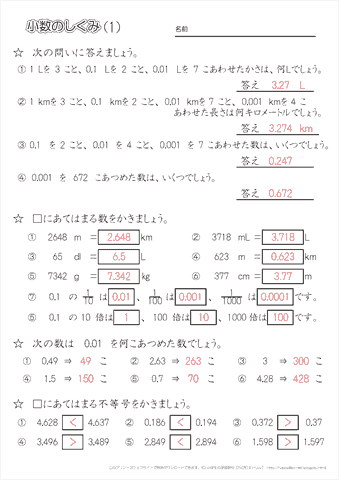 小数のしくみ(1) 名前
☆ 次の問いに答えましょう。
① 1 Lを 3 こと、0.1 Lを 2 こと、0.01 Lを 7 こあわせたかさは、何Lでしょう。
答え 3.27 L
② 1 kmを 3 こと、0.1 kmを 2 こと、0.01 kmを 7 こと、0.001 kmを 4 こ
あわせた長さは何キロメートルでしょう。
答え 3.274 km
③ 0.1 を 2 こと、0.01 を 4 こと、0.001 を 7 こあわせた数は、いくつでしょう。
答え 0.247
④ 0.001 を 672 こあつめた数は、いくつでしょう。
答え 0.672
☆ □にあてはまる数をかきましょう。
① 2648 m = 2.648 km ② 3718 mL = 3.718 L
③ 65 dl = 6.5 L ④ 623 m = 0.623 km
⑤ 7342 g = 7.342 kg ⑥ 377 cm = 3.77 m
⑦ 0.1 の 1/10 は 0.01 、 1/100 は 0.001 、 1/1000 は 0.0001 です。
⑤ 0.1 の 10 倍は 1 、 100 倍は 10 、 1000 倍は 100 です。
☆ 次の数は 0.01 を何こあつめた数でしょう。
① 0.49 ⇒ 49 こ ② 2.63 ⇒ 263 こ ③ 3 ⇒ 300 こ
④ 1.5 ⇒ 150 こ ⑤ 0.7 ⇒ 70 こ ⑥ 4.28 ⇒ 428 こ
☆ □にあてはまる不等号をかきましょう。
① 4.628 < 4.637 ② 0.186 < 0.194 ③ 0.372 > 0.37
④ 3.496 > 3.489 ⑤ 2.894 > 2.849 ⑥ 1.598 > 1.597